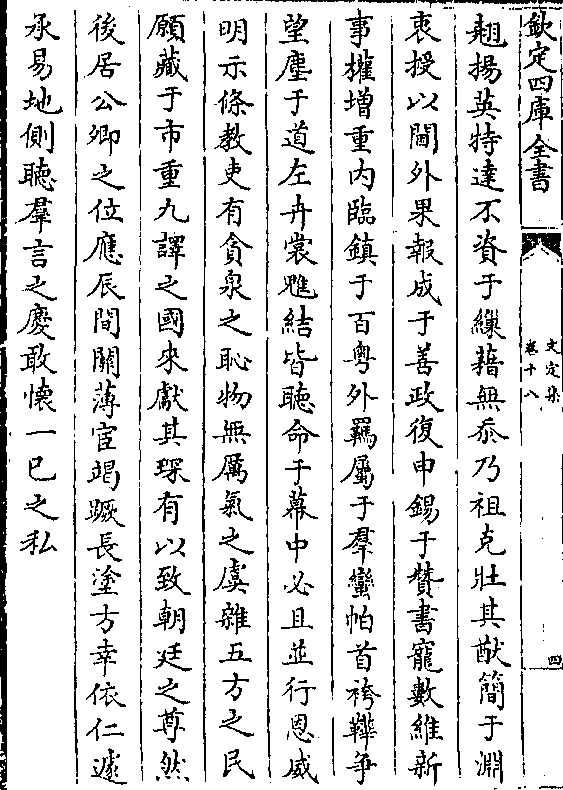 欽定四庫全書
文定集
卷十八
四
翹揚英特達不資于繅藉無忝乃祖克壯其猷簡于淵
衷授以閫外果報成于善政復申錫于贊書寵數維新
事權增重内臨鎮于百粤外羈屬于羣蠻帕首袴鞾爭
望塵于道左卉裳雕結皆聽命于幕中必且並行恩威
明示條教吏有貪泉之恥物無厲氣之虞雜五方之民
願藏于市重九譯之國來獻其琛有以致朝廷之尊然
後居公卿之位應辰間關薄宦竭蹶長塗方幸依仁遽
承易地側聽羣言之慶敢懷一已之私